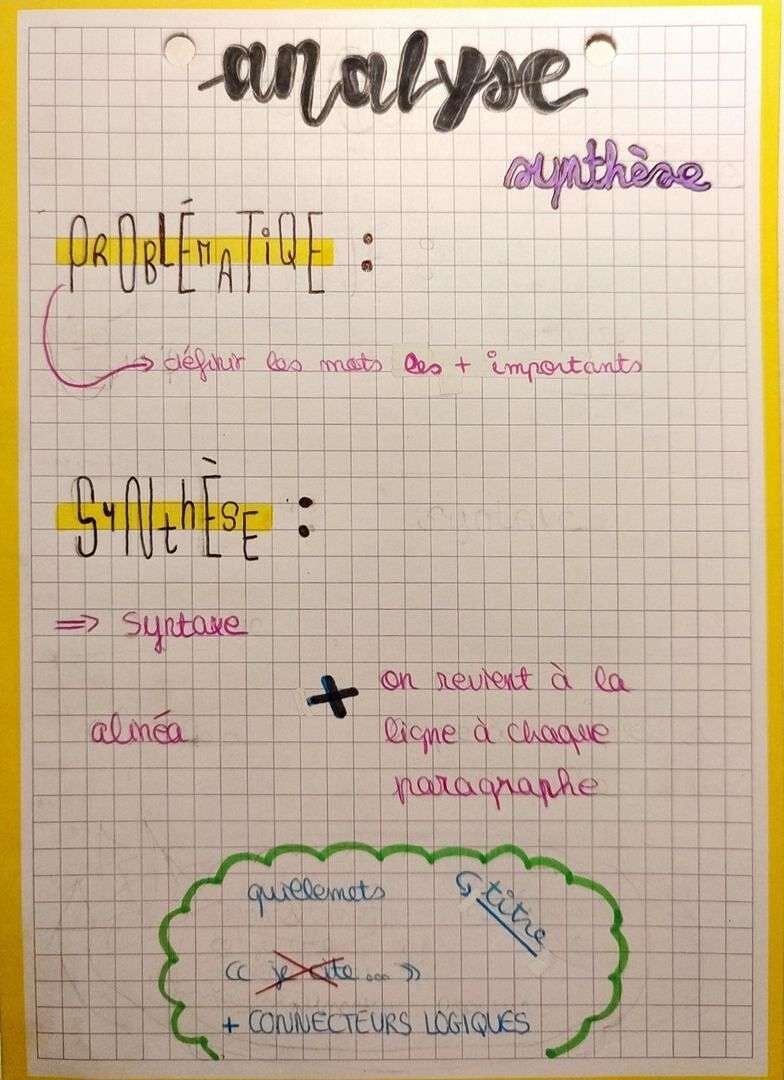 analyse
synthèse
PROBLÉMATIQE :
→ définir les mots les + importants
SyNthÈSE :
⇒ Syntaxe
alinéa + on revient à la
ligne à chaque
paragraphe
guillemets
↳ titre
« je cite ... »
+ CONNECTEURS LOGIQUES